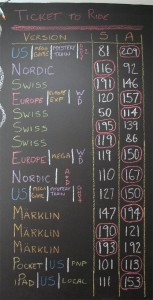 TICKET TO RIDE
VERSION S A
US MEGA GAME MYSTERY TRAIN 81 209
NORDIC 116 92
SWISS 191 146
EUROPE EXP WD 120 157
SWISS 50 114
SWISS 195 139
SWISS 119 86
EUROPE MEGA WD 119 150
NORDIC 110 167
US MEGA GAME MYSTERY TRAIN 127 150
MARKLIN 147 194
MARKLIN 190 121
MARKLIN 193 192
POCKET US PNP 101 113
IPAD US LOCAL 111 153